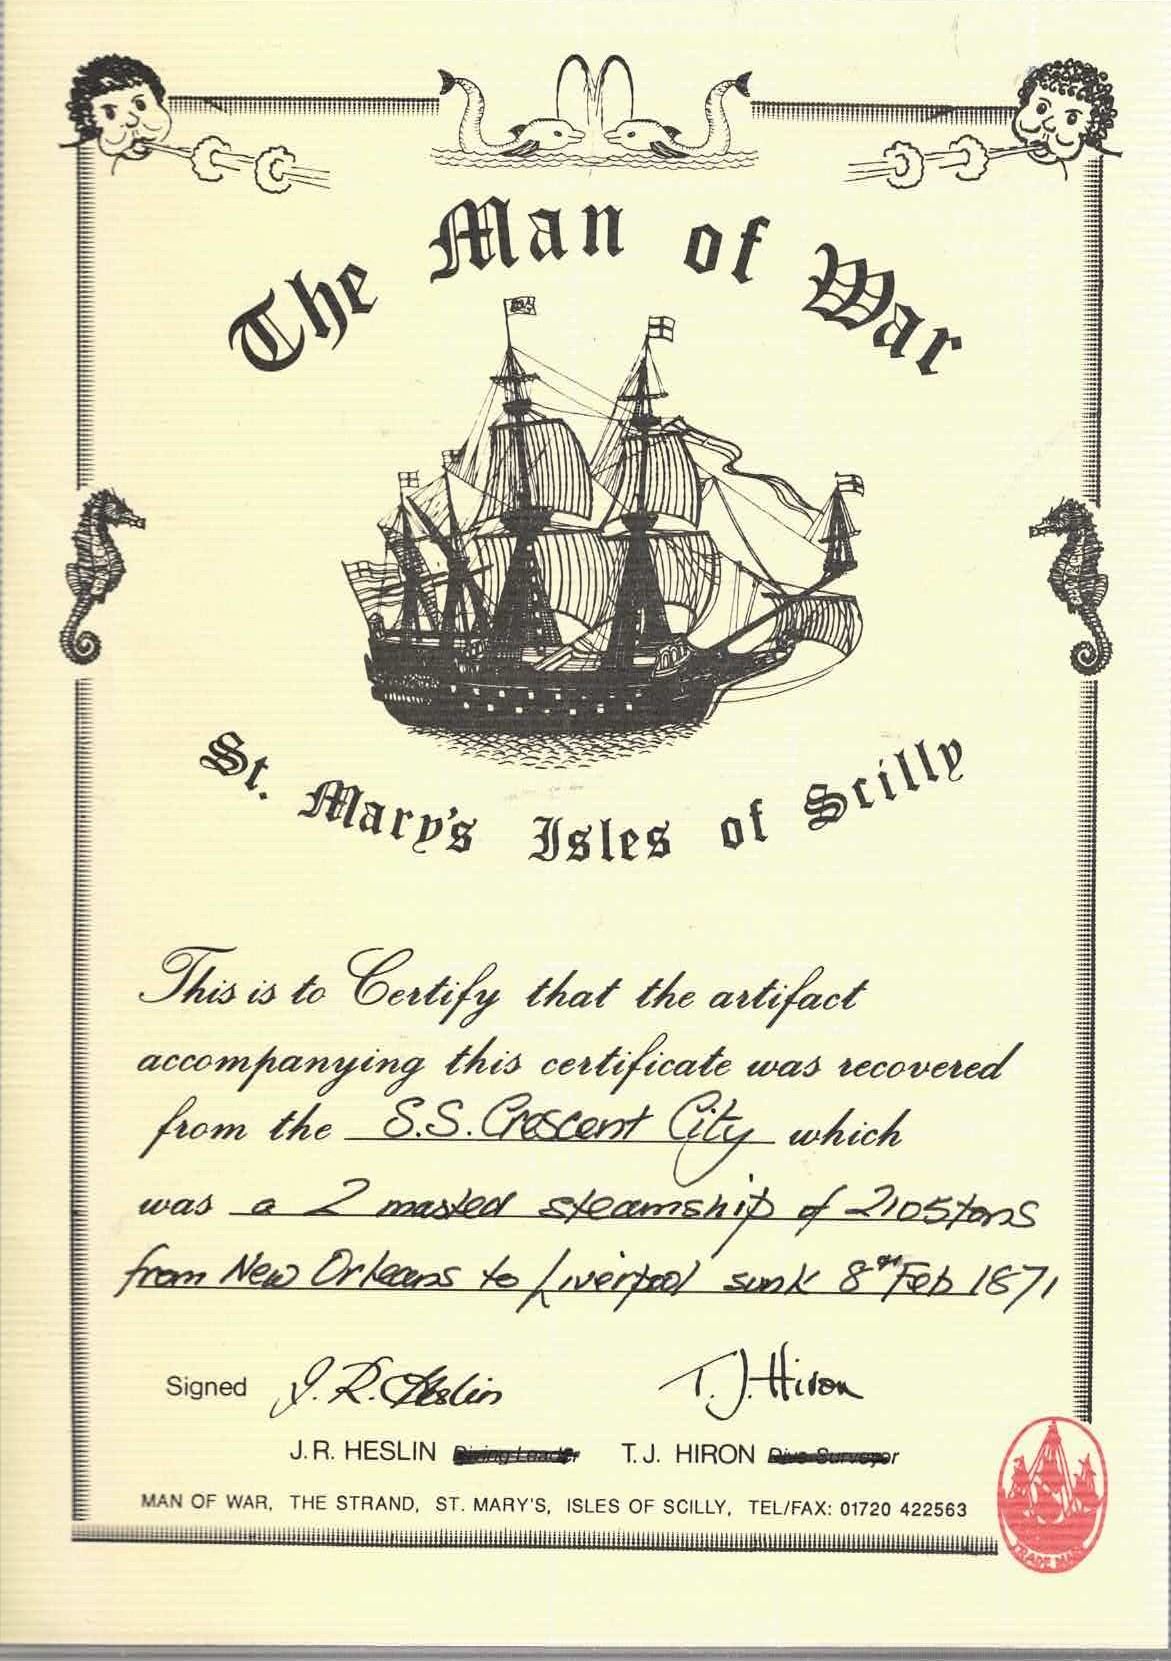 The Man of War
St. Mary's Isles of Scilly
This is to Certify that the artifact
accompanying this certificate was recovered
from the S.S. Crescent City which
was a 2 masted steamship of 2105 tons
from New Orleans to Liverpool sunk 8th Feb 1871
Signed J.R. Heslin T.J. Hiron
J.R. HESLIN Diving Leader T.J. HIRON Dive Surveyor
MAN OF WAR, THE STRAND, ST. MARY'S, ISLES OF SCILLY, TEL/FAX: 01720 422563
TRADE MARK